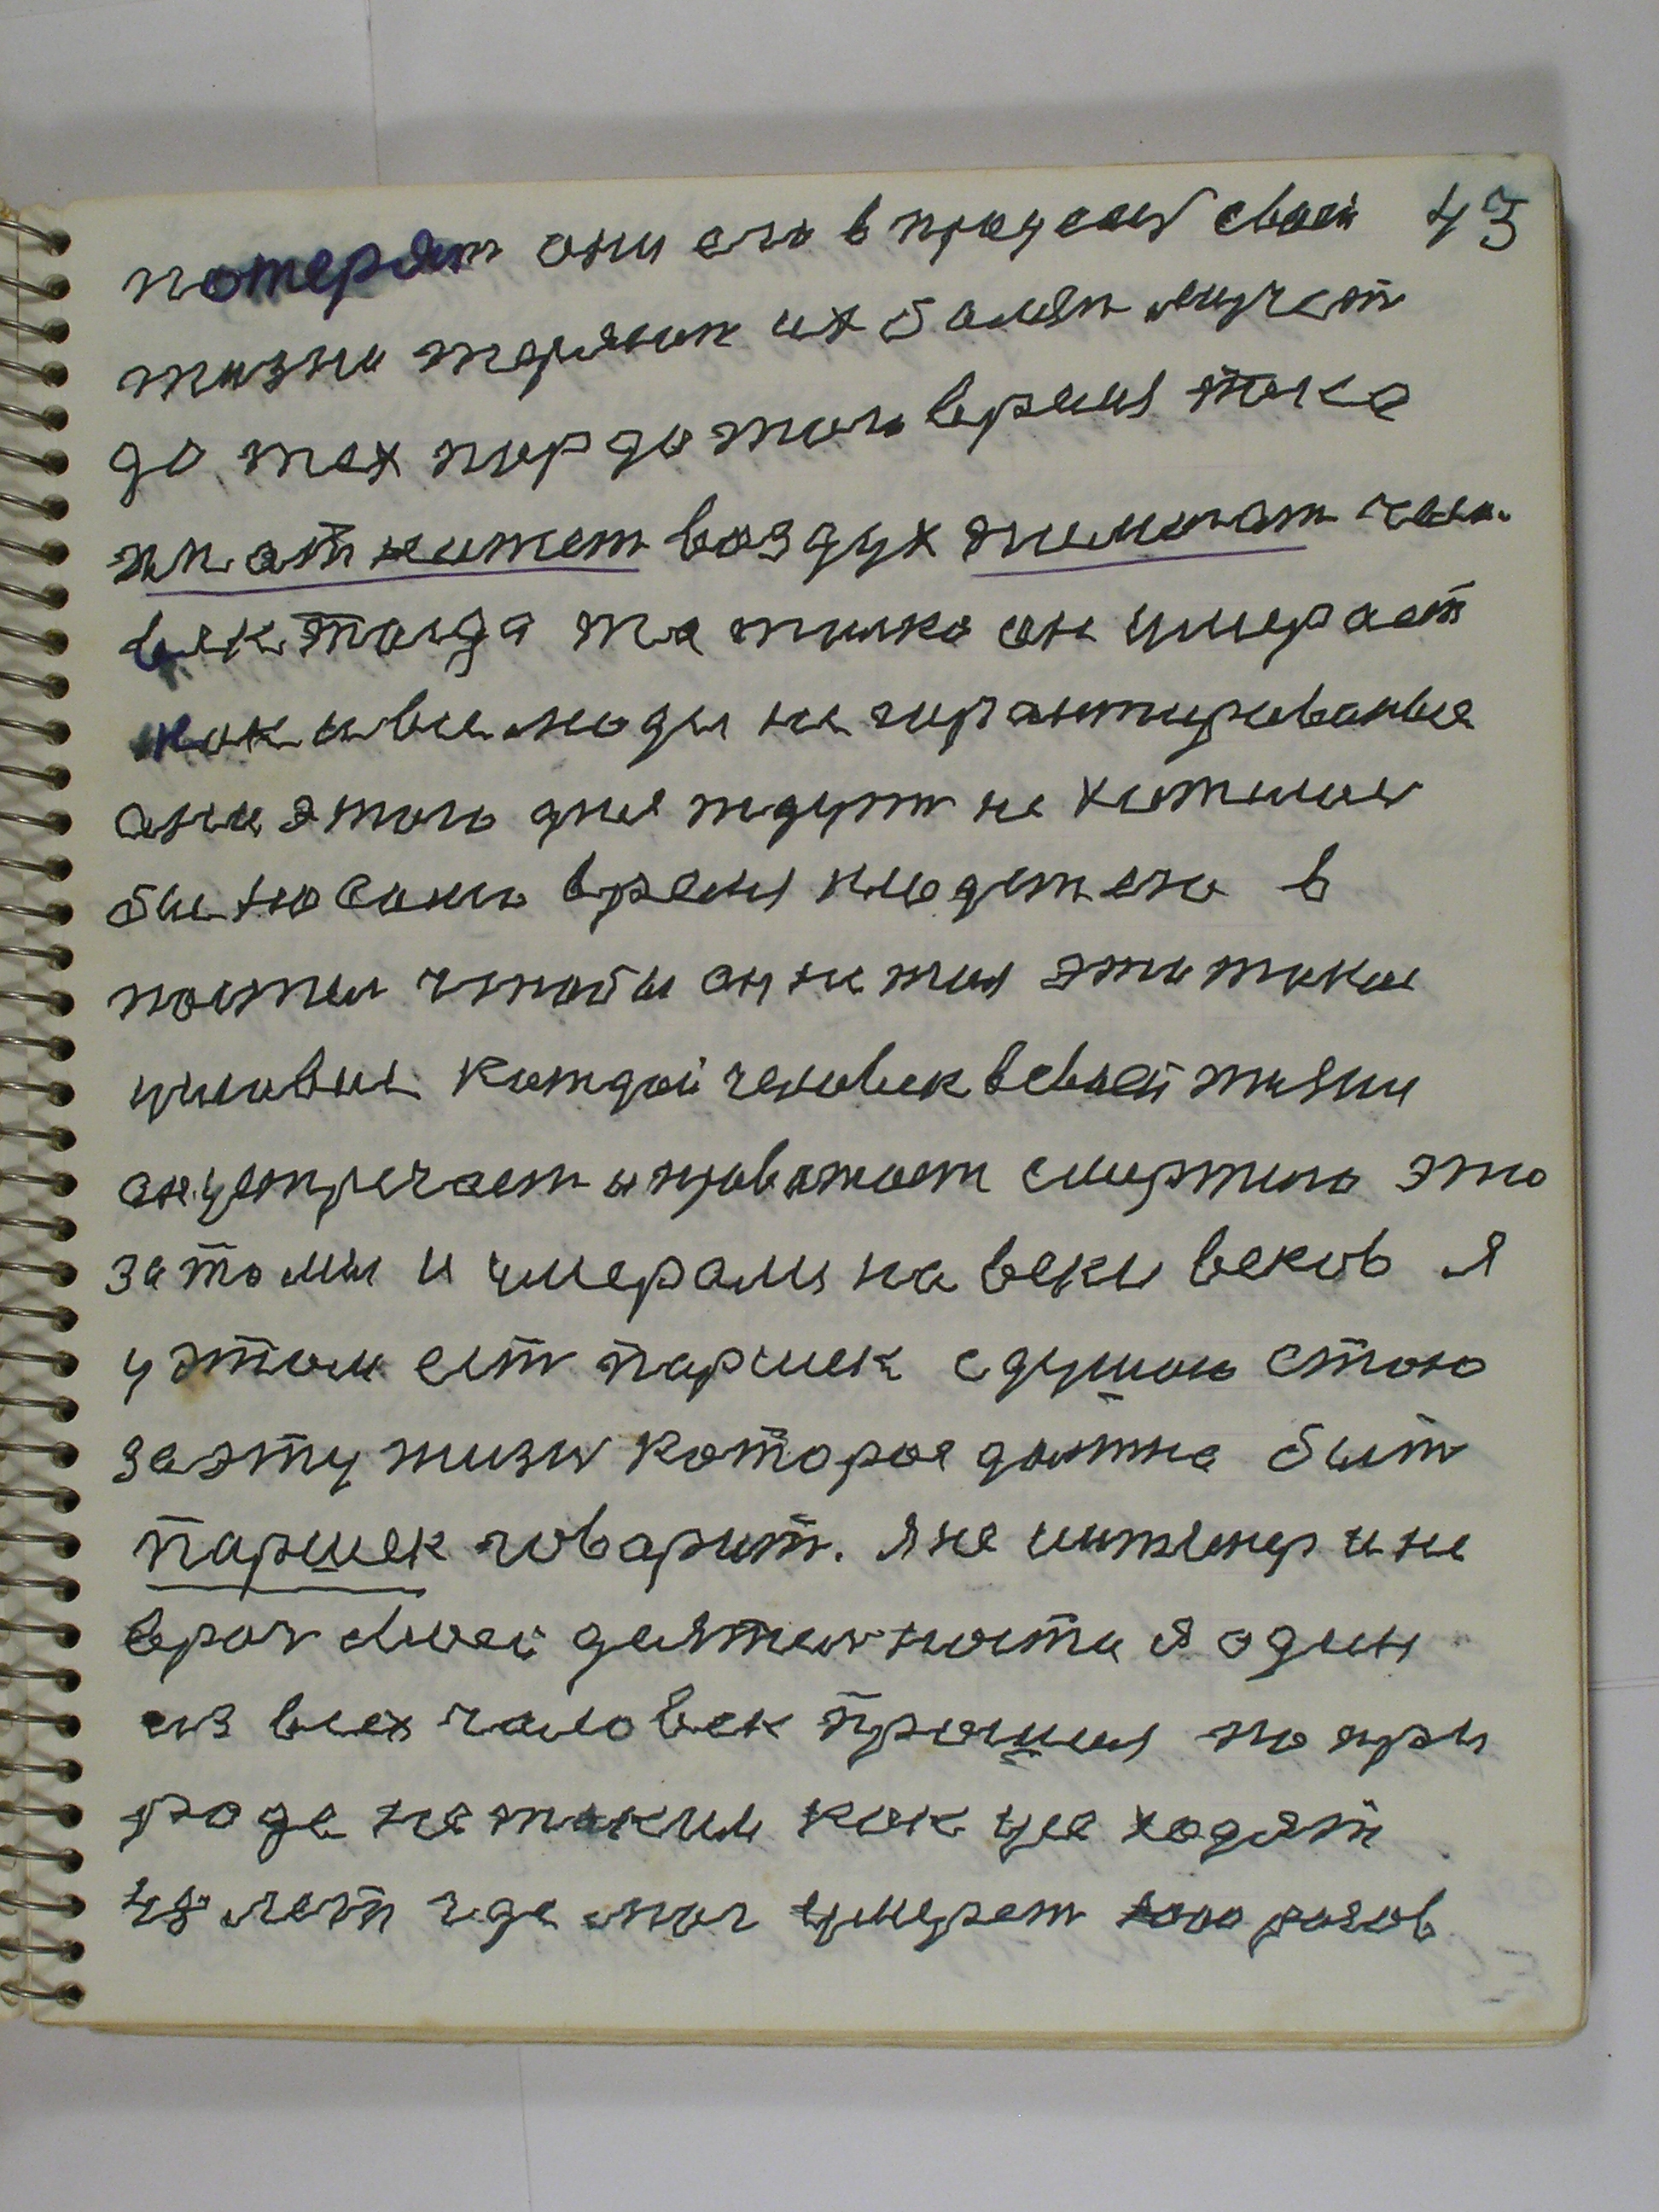 потерят они его в процессу своей 43
жизни теряют их болят мучеть
до тех пор до того время пока
ни откинет воздух зиминат чело
век тогда то тилко он умерает
как и вси люди не гирантированые
они этого дня ждут не хотелос
бы но само время кладет его в
постел чтобы он не жил эти такие
условия каждой человек в своей жизни
он устречает и проважает смертию это
зато мы и умерали на веки веков я
у этом ест паршек с душою стою
за эту жизн которая должна быт
паршек говарит. я не инжинер и не
врач своей деятелности я один
из всех человек прошил по при
роде не таким как усе ходят
48 лет где мог умерет 1000 разов